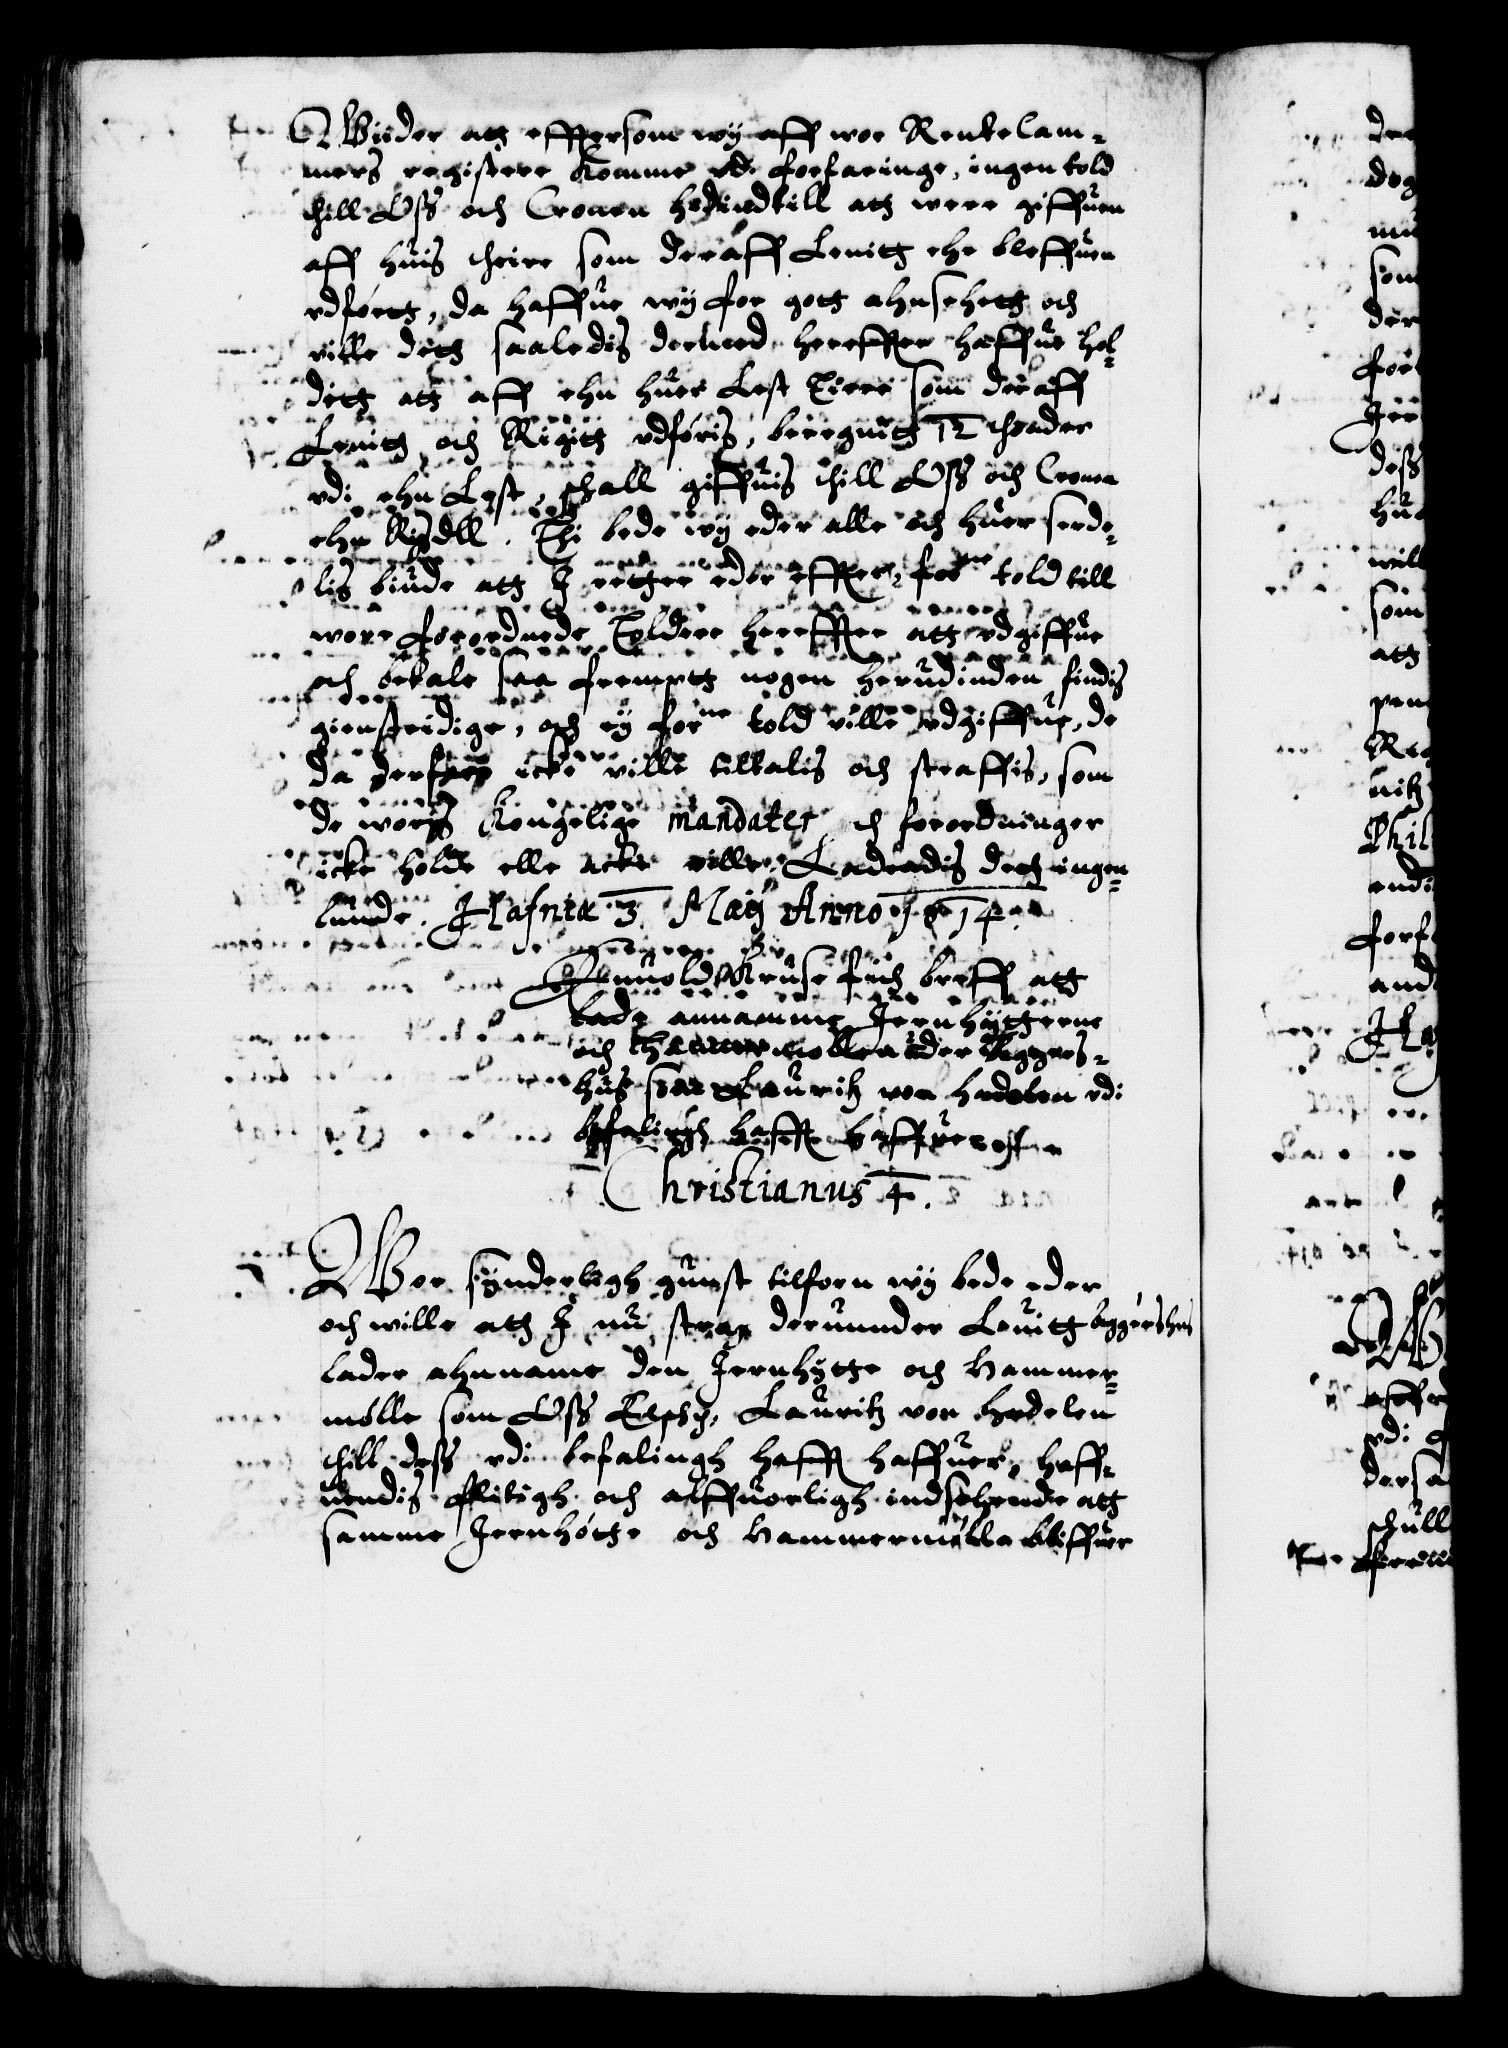 Wiider att effthersom wy aff wor Rentekam-
mers registere komme vdi forfaringe, ingen told
thill Oss och Cronen hedindtill att were giffuen
aff huis thiere som der aff Lenitt ehr bleffuen
vdførtt, da haffue wy for gott ahnsehett och
ville dett saaledis dermed hereffter haffue hol-
ditt att aff ehn huer Lest Tiere som der aff
Lenitt och Rigitt vdføris, beregnitt 12 thønder
vdi ehn Lest, schall giffuis thill Oss och Cronen
ehn Rixdll. Thi bede wy eder alle och huer serde-
lis biude att I retter eder effter, forne told till
wore forordnede Toldere hereffter att vdgiffue
och betale saa frempt nogen herudinden findis
gienstridige, och ey forne told ville vdgiffue, de
da derfore icke ville tiltalis och straffis, som
de wores Kongelige mandater och forordninger
icke holde elle ackte ville. Ladendis dett ingen-
lunde. Hafniæ 3 Maij Anno 1614.
Enuold Kruse fich breff att
lade annamme Jernhyttene
och Hammermøllen vnder Aggers-
hus som Lauritz von Hadelen vdi
befalingh hafft haffuer
Christianus 4.
Wor synderligh gunst tilforn wy bede eder
och wille att I nu strax derunnder Lenitt Aggershus
lader ahnname den Jernhytte och Hammer-
mølle som Oss Elsch. Lauritz von Hadelen
thill dess vdi befalingh hafft haffuer, haff-
uendis flitigh och alffuorligh indsehende att
samme Jernhøtte och Hammermølle bliffuer